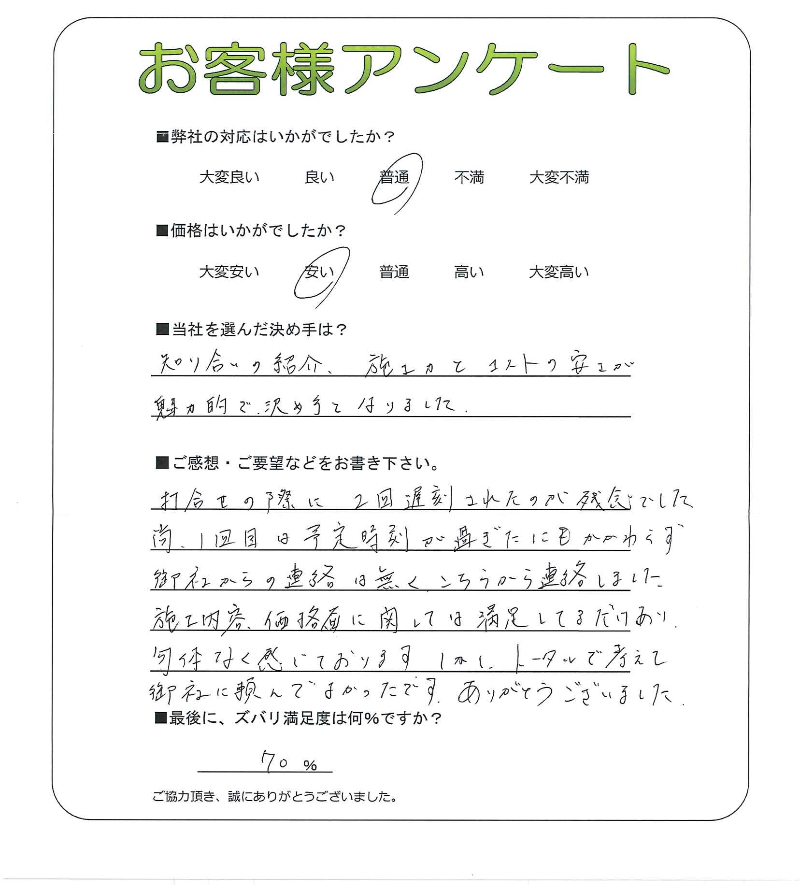 お客様アンケート
■弊社の対応はいかがでしたか？
大変良い 良い 普通 不満 大変不満
■価格はいかがでしたか？
大変安い 安い 普通 高い 大変高い
■当社を選んだ決め手は？
知り合いの紹介、施工力とコストの安さが
魅力的で決め手となりました.
■ご感想・ご要望などをお書き下さい。
打合せの際に2回遅刻されたのが残念でした
尚、1回目は予定時刻が過ぎたにもかかわらず
御社からの連絡は無く、こちらから連絡しました.
施工内容、価格面に関しては満足してるだけあり、
勿体なく感じております しかし、トータルで考えて
御社に頼んでよかったです. ありがとうございました.
■最後に、ズバリ満足度は何%ですか？
70 %
ご協力頂き、誠にありがとうございました。